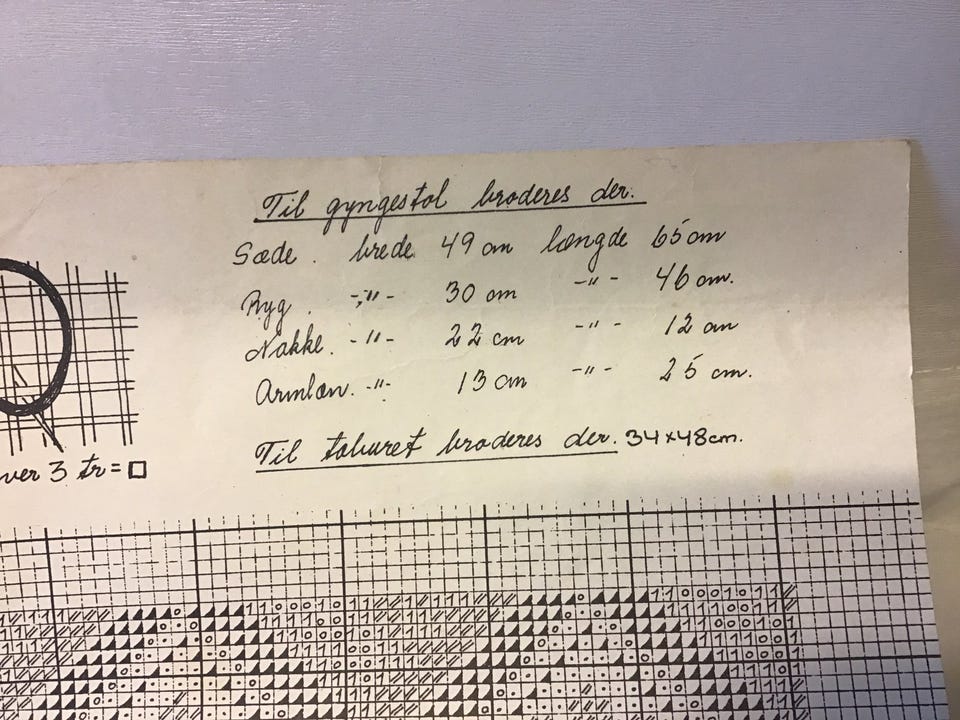 Til gyngestol broderes der.
Sæde. brede 49 cm længde 65 cm
Ryg. -"- 30 cm -"- 46 cm.
Nakke. -"- 22 cm -"- 12 cm
Armlæn. -"- 13 cm -"- 25 cm.
Til taburet broderes der. 34x48cm.
ver 3 tr = □